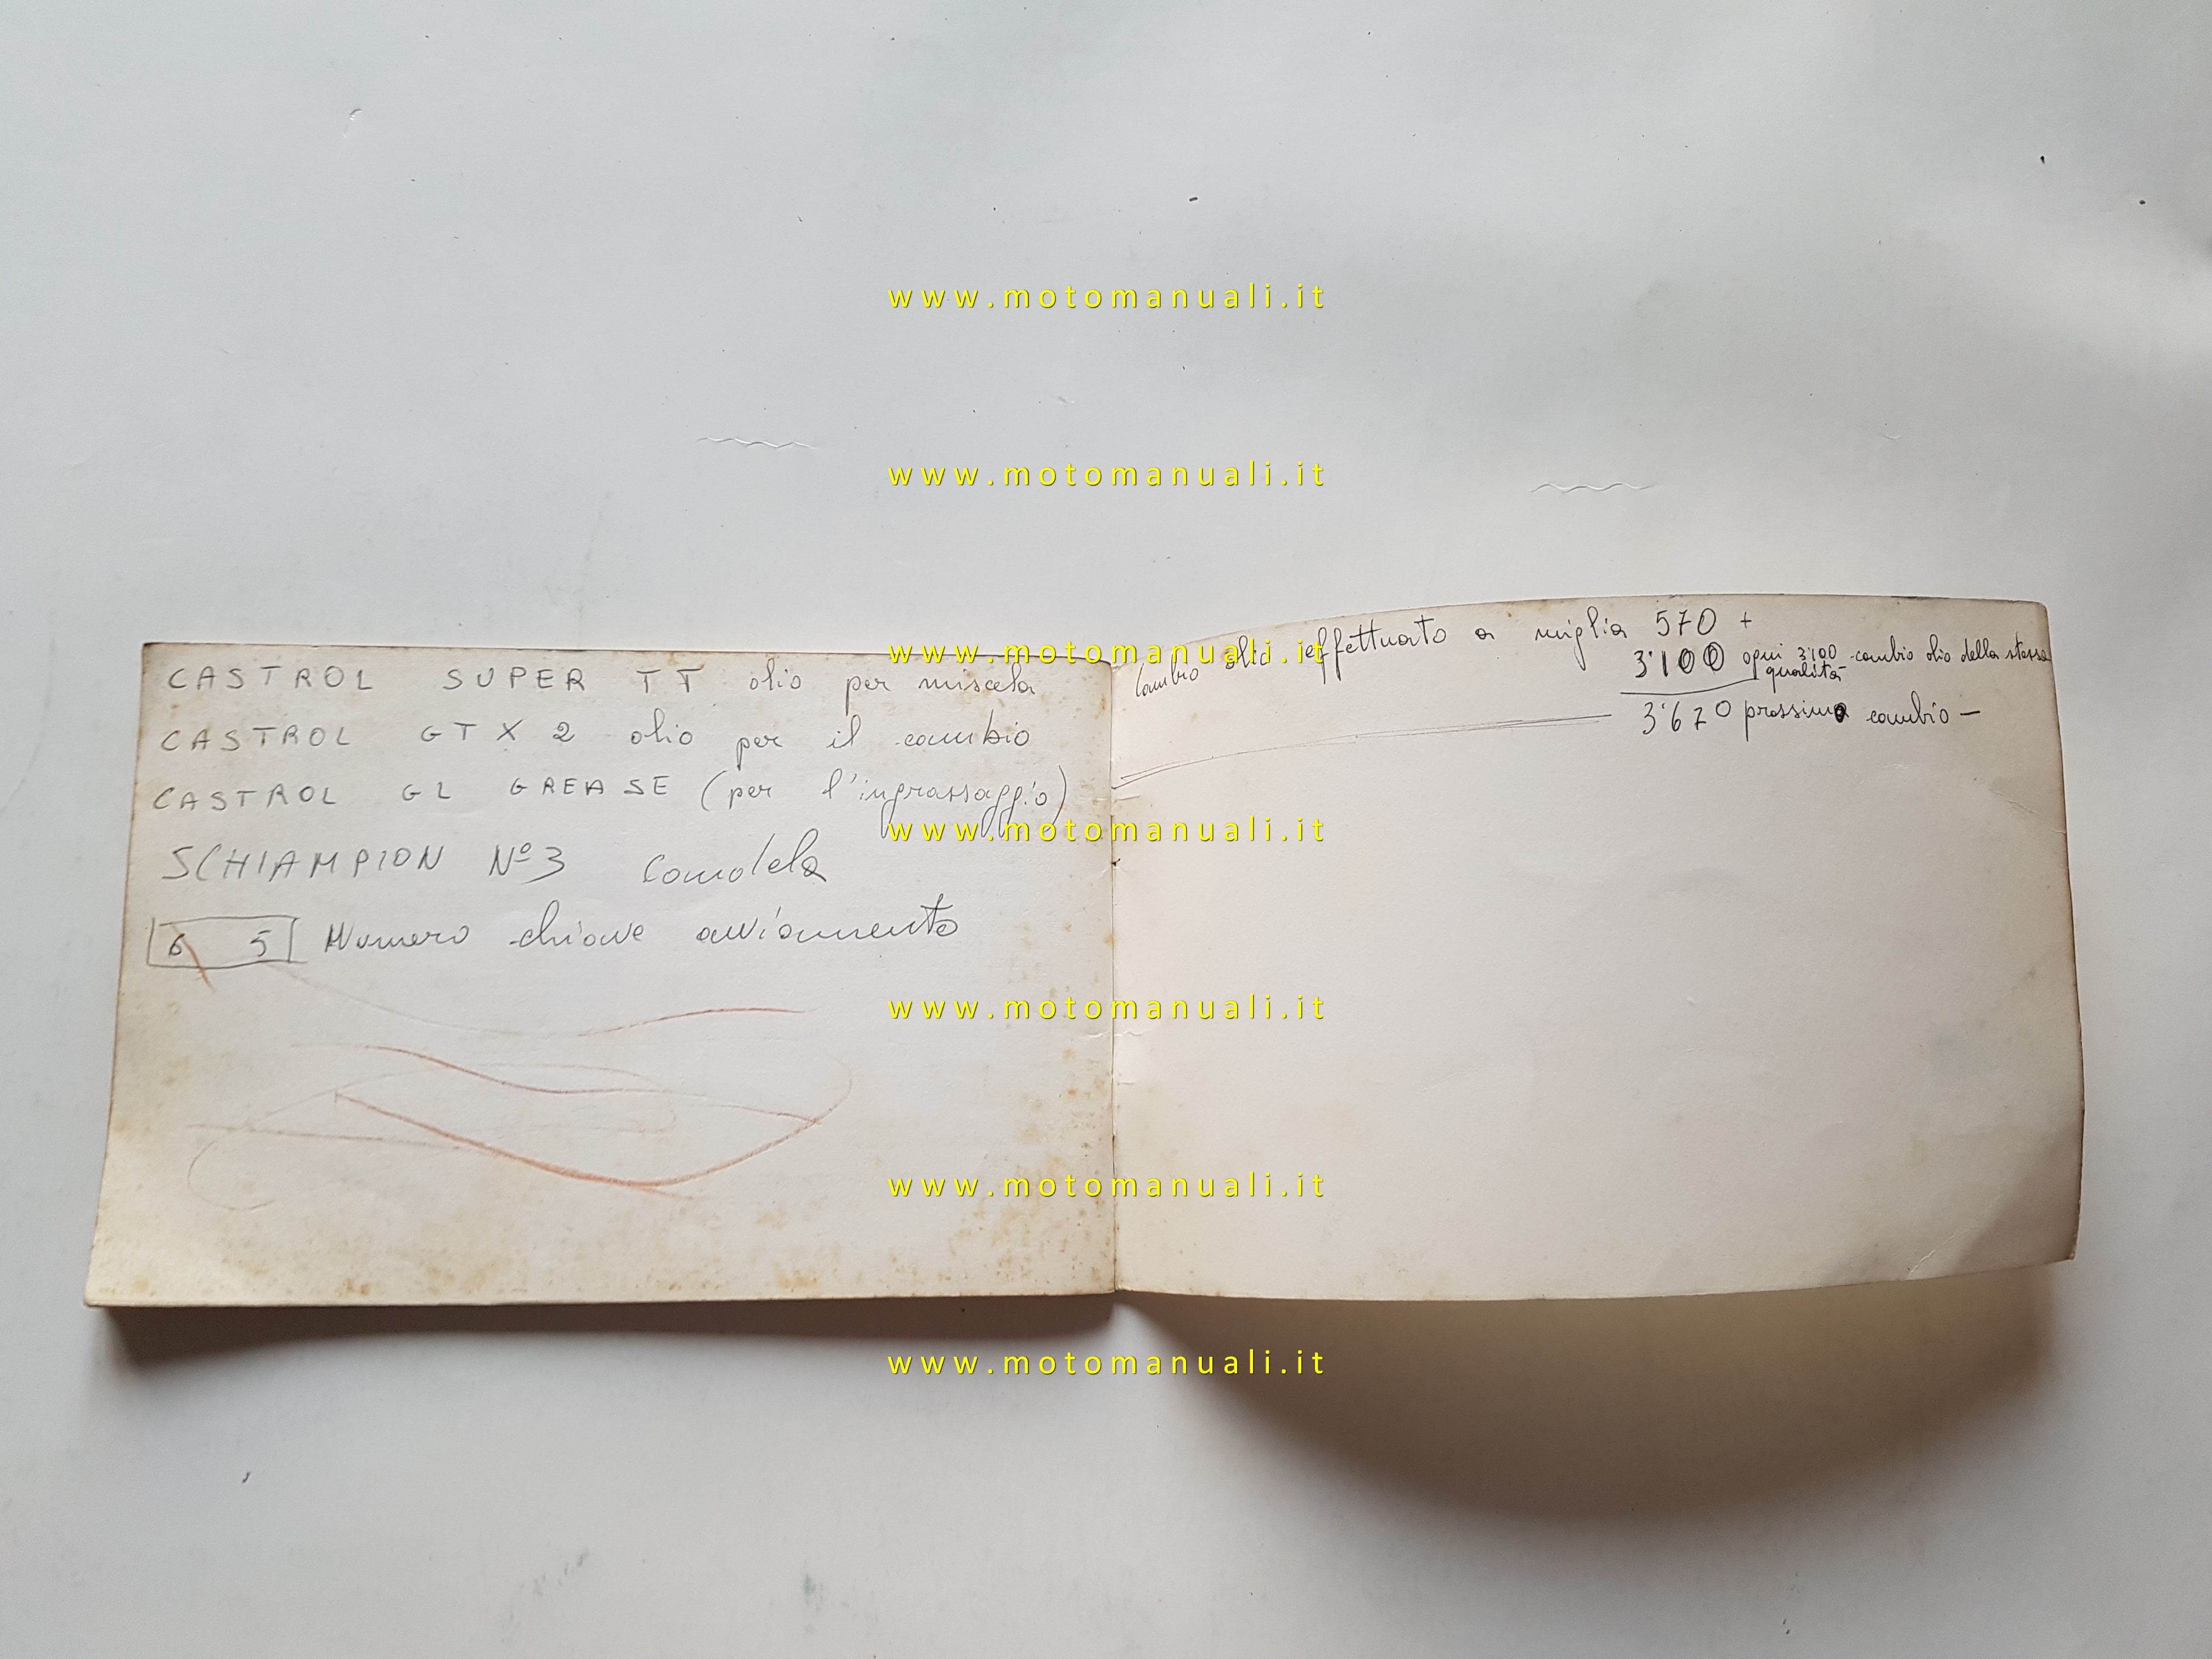 www.motomanuali.it
www.motomanuali.it
www.motomanuali.it
CASTROL SUPER TT olio per miscela
CASTROL GTX 2 olio per il cambio
CASTROL GL GREASE (per l'ingrassaggio)
www.motomanuali.it
SCHIAMPION Nº3 Candela
6 5 Numero chiave avviamento
www.motomanuali.it
www.motomanuali.it
www.motomanuali.it
Cambio olio effettuato a miglia 570 +
3'100 ogni 3'100 cambio olio della stessa
qualità
3'670 prossimo cambio —